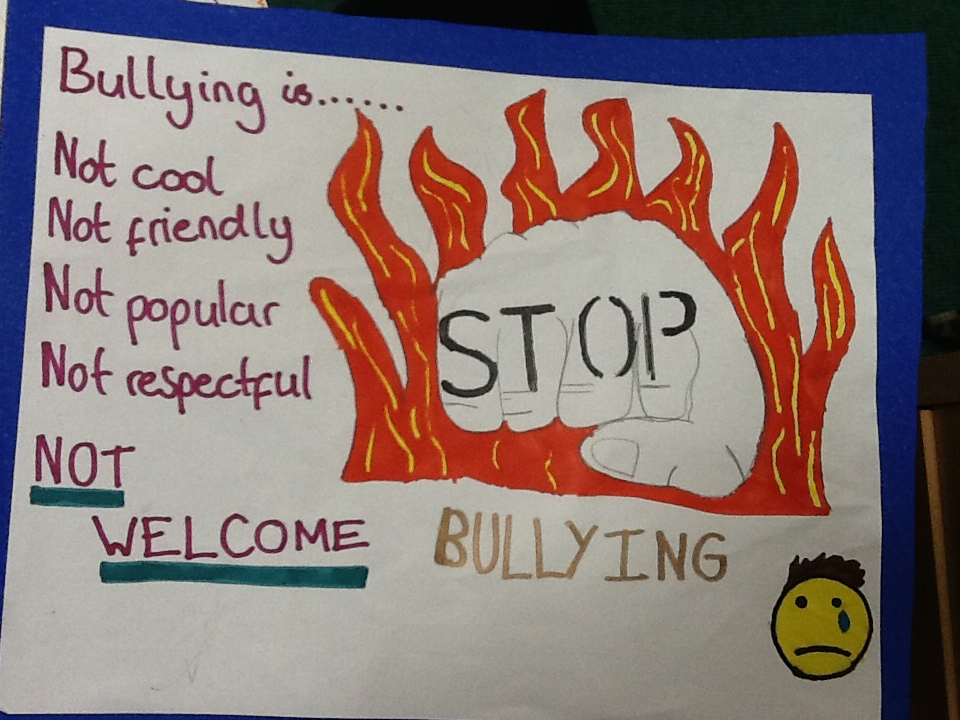 Bullying is......
Not cool
Not friendly
Not popular
Not respectful
NOT
WELCOME
STOP
BULLYING